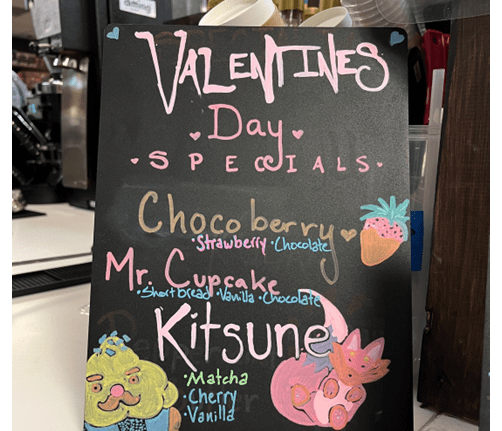 VALENTINES
Day
SPECIALS
Chocoberry
·Strawberry ·Chocolate
Mr. Cupcake
·Shortbread ·Vanilla ·Chocolate
Kitsune
·Matcha
·Cherry
·Vanilla